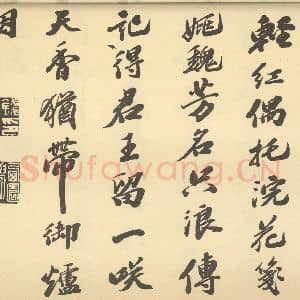 輕紅偶托浣花箋
姚魏芳名只浪傳
記得君王留一咲
天香猶帶御爐
Shufawang.CN